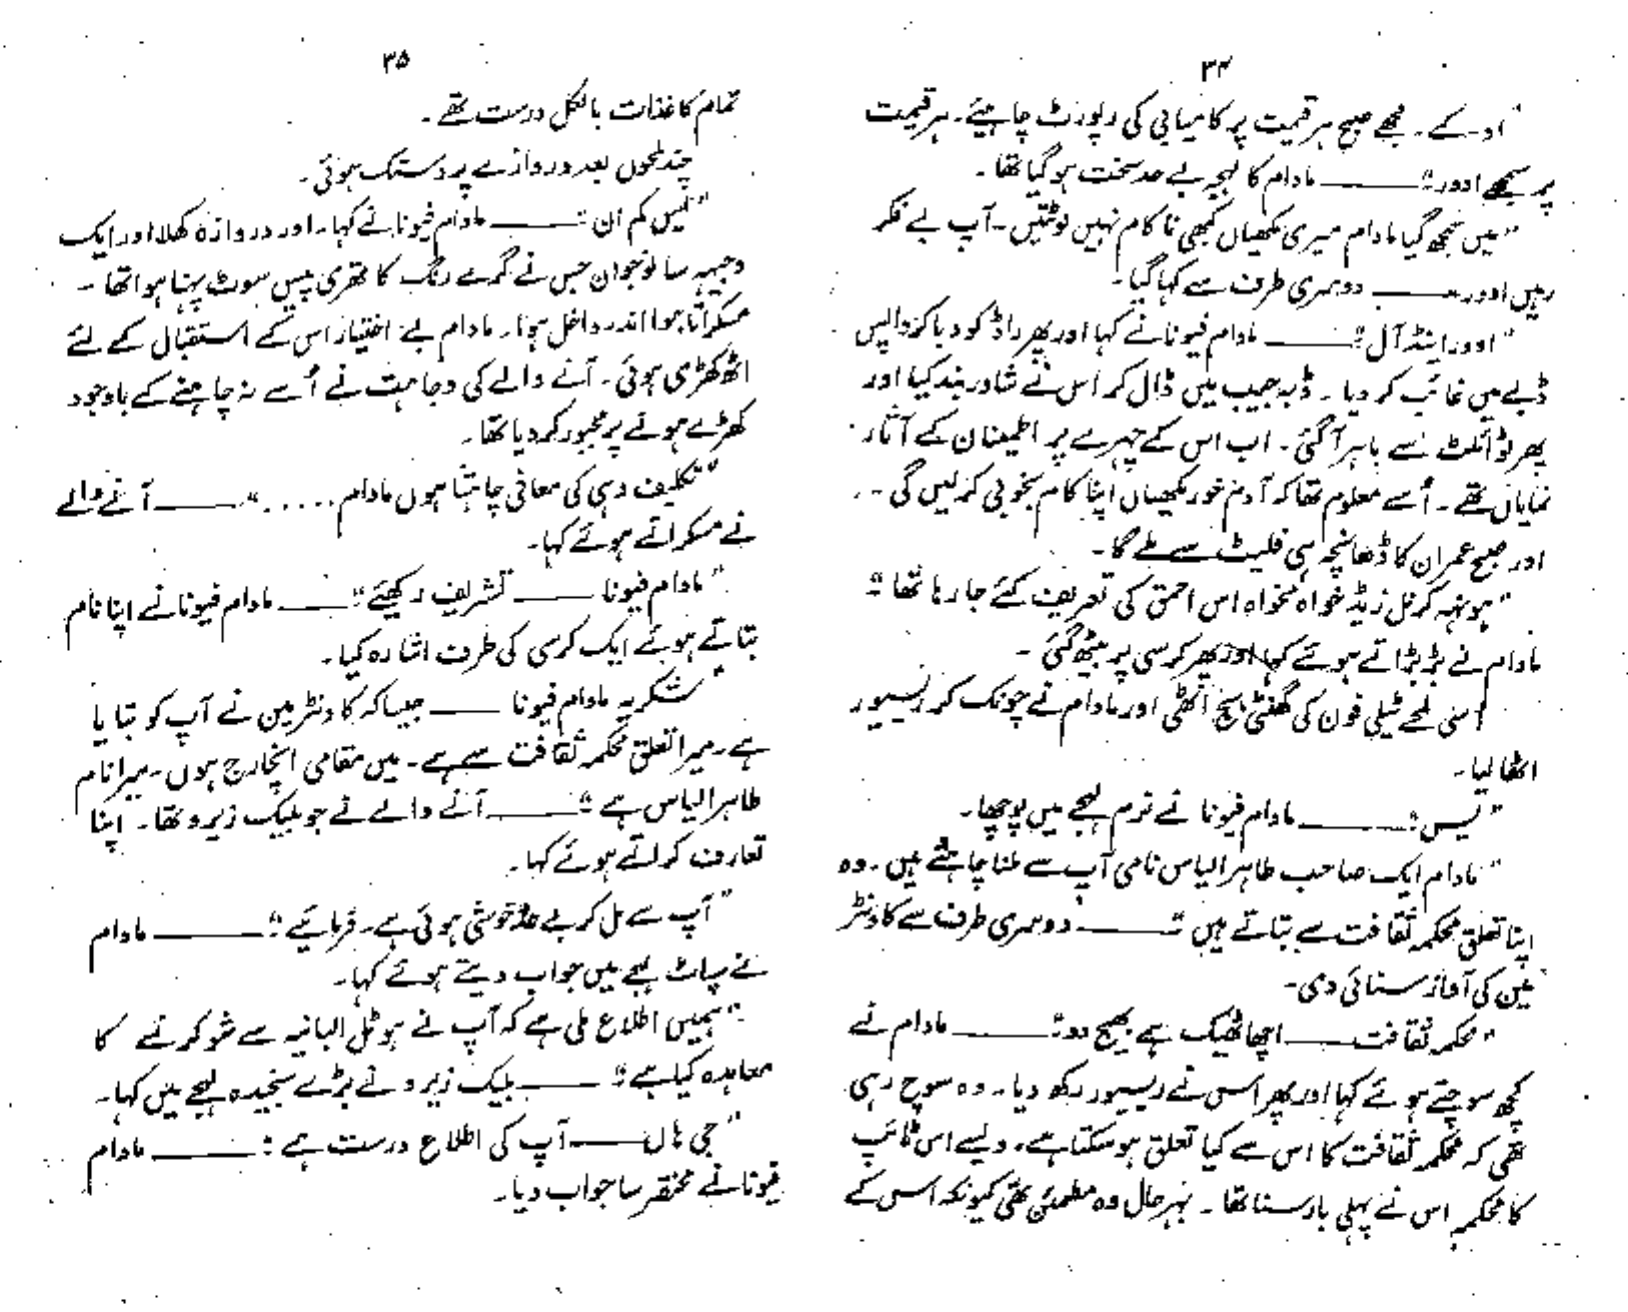 ۳۴
"اوکے۔ مجھے صبح ہر قیمت پر کامیابی کی رپورٹ چاہیئے۔ ہر قیمت
پر سمجھے اوور"ــــــ مادام کا لہجہ بے حد سخت ہو گیا تھا۔
"میں سمجھ گیا مادام میری مکھیاں کبھی ناکام نہیں لوٹتیں۔ آپ بے فکر
رہیں اوور ــــــ دوسری طرف سے کہا گیا۔
"اوور اینڈ آل"ــــــ مادام فیونا نے کہا اور پھر راڈ کو دبا کر واپس
ڈبے میں غائب کر دیا۔ ڈبہ جیب میں ڈال کر اس نے شاور بند کیا اور
پھر ٹوائلٹ سے باہر آ گئی۔ اب اس کے چہرے پر اطمینان کے آثار
نمایاں تھے۔ اُسے معلوم تھا کہ آدم خور مکھیاں اپنا کام بخوبی کر لیں گی۔
اور صبح عمران کا ڈھانچہ ہی فلیٹ سے ملے گا۔
"ہونہہ کرنل زیڈ خواہ مخواہ اس احمق کی تعریف کئے جا رہا تھا"
مادام نے بڑبڑاتے ہوئے کہا اور پھر کرسی پر بیٹھ گئی۔
اسی لمحے ٹیلی فون کی گھنٹی بج اٹھی اور مادام نے چونک کر ریسیور
اٹھا لیا۔
"یس"ــــــ مادام فیونا نے نرم لہجے میں پوچھا۔
"مادام ایک صاحب طاہر الیاس نامی آپ سے ملنا چاہتے ہیں۔ وہ
اپنا تعلق محکمہ ثقافت سے بتاتے ہیں"ــــــ دوسری طرف سے کاؤنٹر
مین کی آواز سنائی دی۔
"محکمہ ثقافت ــــــ اچھا ٹھیک ہے بھیج دو"ــــــ مادام نے
کچھ سوچتے ہوئے کہا اور پھر اس نے ریسیور رکھ دیا۔ وہ سوچ رہی
تھی کہ محکمہ ثقافت کا اس سے کیا تعلق ہو سکتا ہے۔ ویسے اس ٹائپ
کا محکمہ اس نے پہلی بار سنا تھا۔ بہرحال وہ مطمئن تھی کیونکہ اس کے
۳۵
تمام کاغذات بالکل درست تھے۔
چند لمحوں بعد دروازے پر دستک ہوئی۔
"یس کم ان"ــــــ مادام فیونا نے کہا۔ اور دروازہ کھلا اور ایک
وجیہہ سا نوجوان جس نے گہرے رنگ کا تھری پیس سوٹ پہنا ہوا تھا۔
مسکراتا ہوا اندر داخل ہوا۔ مادام بے اختیار اس کے استقبال کے لئے
اٹھ کھڑی ہوئی۔ آنے والے کی وجاہت نے اُسے نہ چاہنے کے باوجود
کھڑے ہونے پر مجبور کر دیا تھا۔
"تکلیف دہی کی معافی چاہتا ہوں مادام....."ــــــ آنے والے
نے مسکراتے ہوئے کہا۔
"مادام فیونا ــــــ تشریف رکھیئے"ــــــ مادام فیونا نے اپنا نام
بتاتے ہوئے ایک کرسی کی طرف اشارہ کیا۔
"شکریہ مادام فیونا ــــــ جیسا کہ کاؤنٹر مین نے آپ کو بتایا
ہے۔ میرا تعلق محکمہ ثقافت سے ہے۔ میں مقامی انچارج ہوں۔ میرا نام
طاہر الیاس ہے"ــــــ آنے والے نے جو بلیک زیرو تھا۔ اپنا
تعارف کراتے ہوئے کہا۔
"آپ سے مل کر بے حد خوشی ہوئی ہے۔ فرمائیے"ــــــ مادام
نے سپاٹ لہجے میں جواب دیتے ہوئے کہا۔
"ہمیں اطلاع ملی ہے کہ آپ نے ہوٹل البانیہ سے شو کرنے کا
معاہدہ کیا ہے"ــــــ بلیک زیرو نے بڑے سنجیدہ لہجے میں کہا۔
"جی ہاں ــــــ آپ کی اطلاع درست ہے"ــــــ مادام
فیونا نے مختصر سا جواب دیا۔